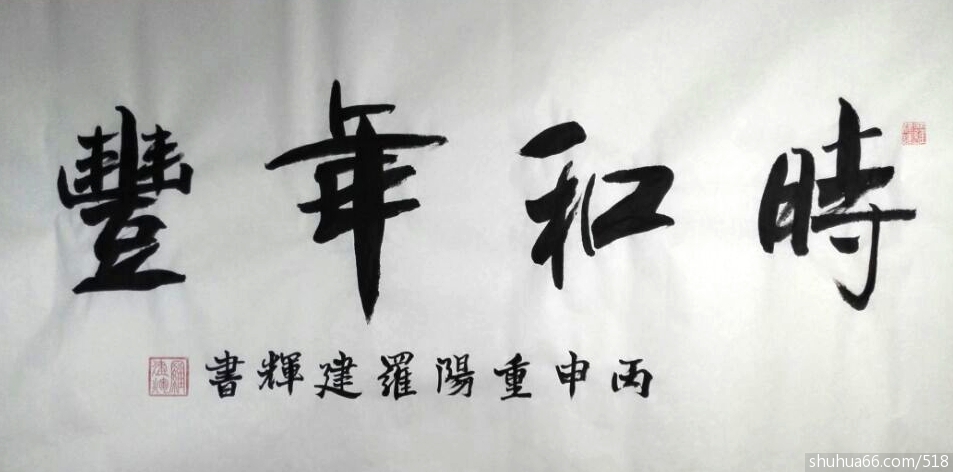 時和年豐
丙申重陽羅建輝書
羅建輝
shuhua66.com/518